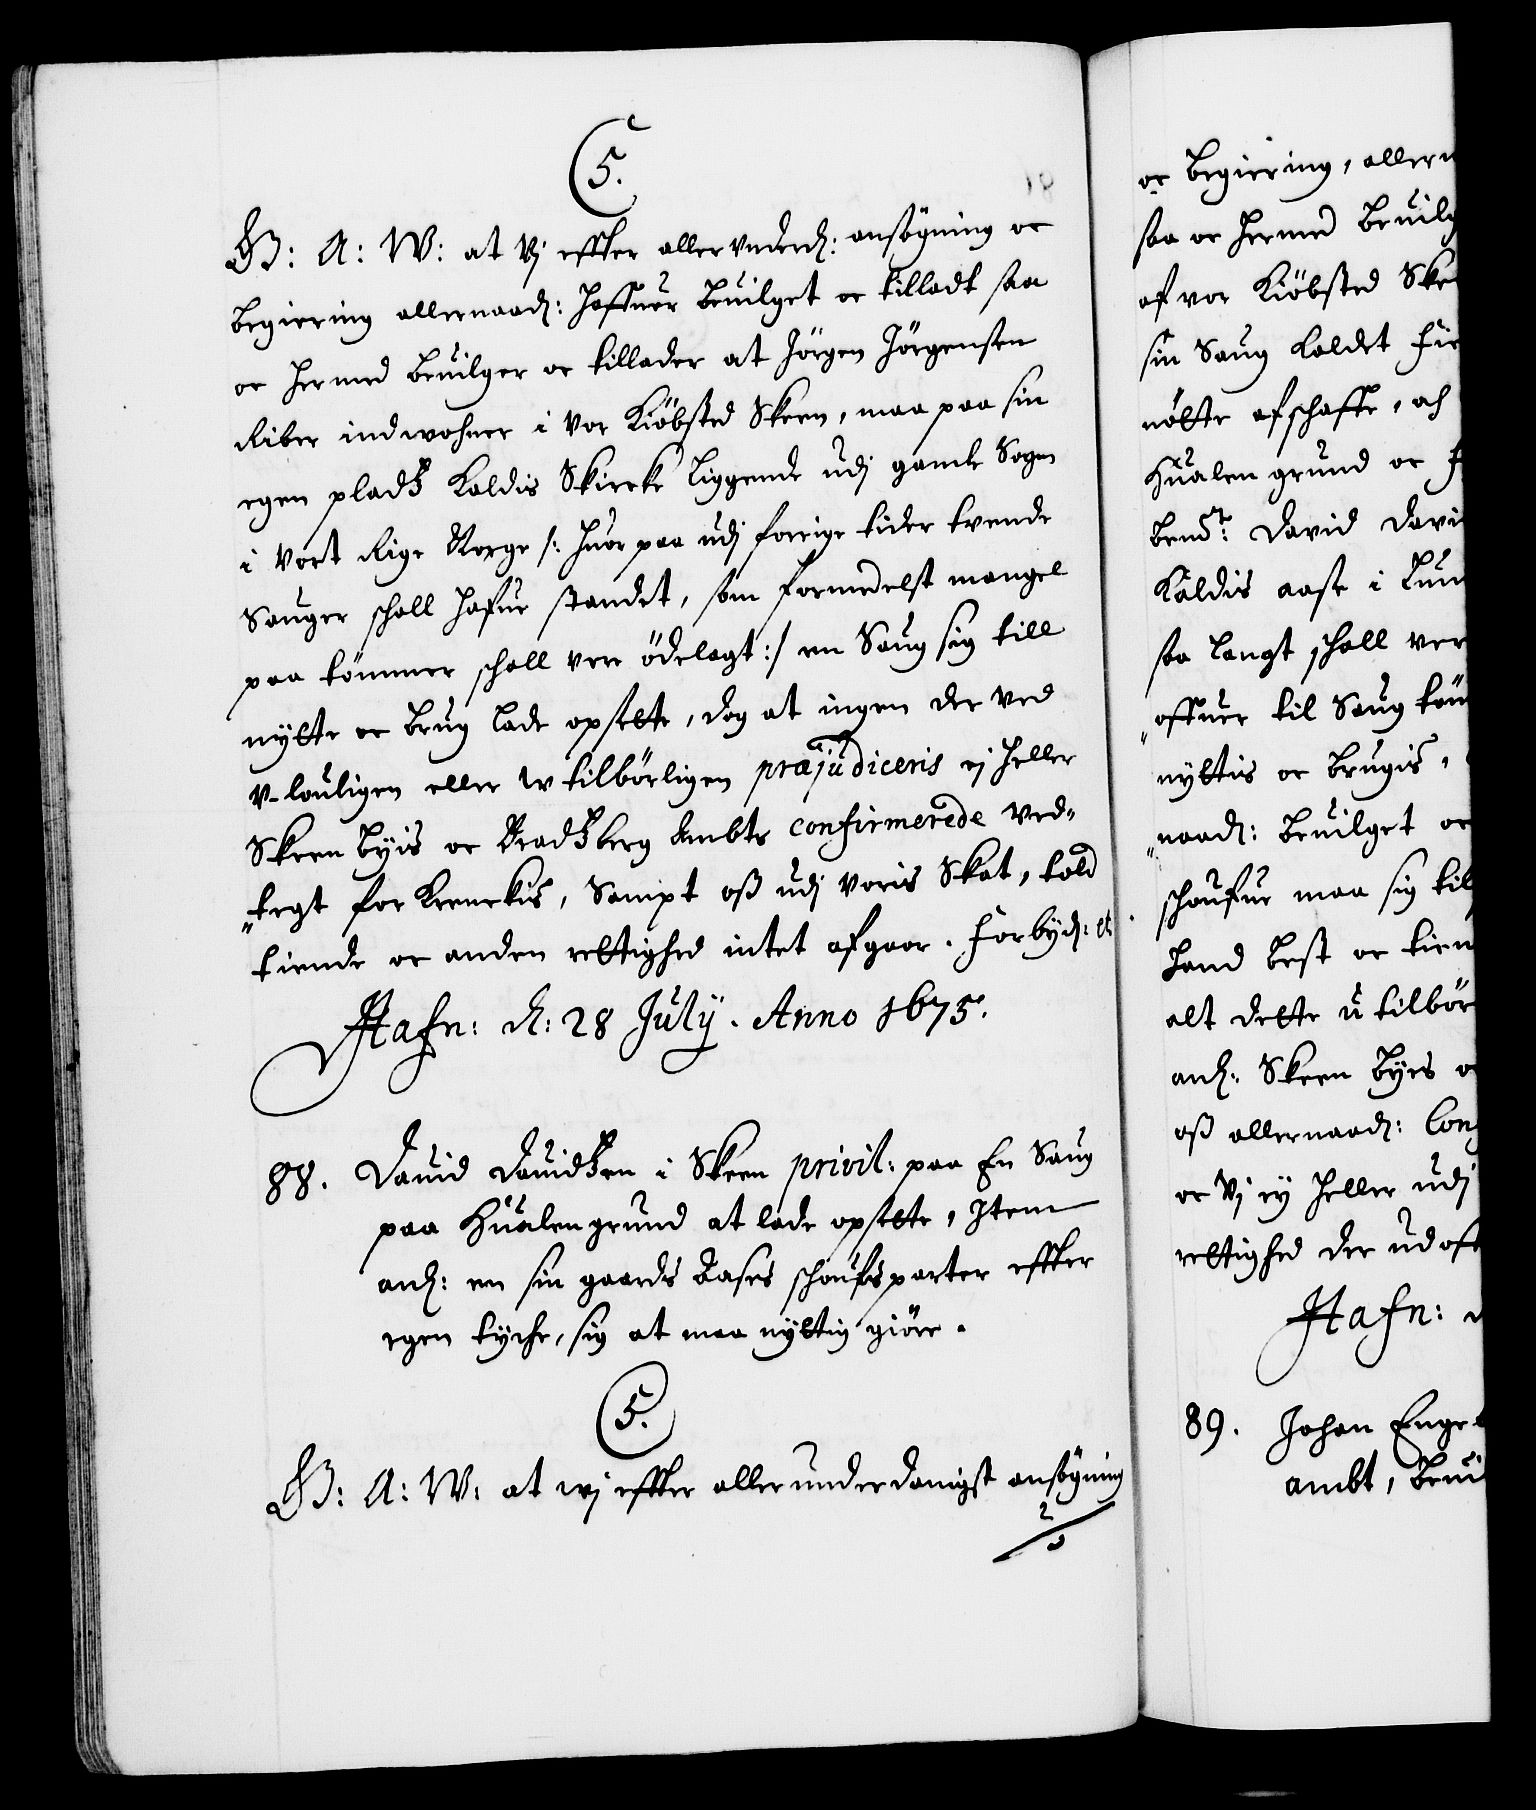 C
5.
G: A: W: at Vj effter allervnderd: ansögning oc
begiering allernaad: haffuer beuilget oc tilladt saa
oc hermed beuilger oc tillader at Jörgen Jörgensen
Riber indwohner i vor Kiöbsted Skeen, maa paa sin
egen pladtz kaldis Skierke liggende udj gamle Sogen
i vort Rige Norge /: huor paa udj forrige tider tvende
Sauger schall hafue standet, som formedelst mangel
paa tömmer schall vere ödelagt :/ en Saug sig till
nÿtte oc brug lade opsette, dog at ingen der ved
v-louligen eller w tilbörligen præjudiceris ej heller
Skeen bÿis oc Bradtzberg Ambts confirmerede ved-
tegt for krenckis, Sampt oss udj voris Skat, told
tiende oc anden rettighed intet afgaar. Forbÿd: etc.
Hafn: d: 28 Julÿ. Anno 1675.
88. David Davidtzen i Skeen privil: paa En Saug
paa Hualen grund at lade opsette, Item
anl: en sin gaards Aases schoufs parter effter
egen tÿcke, sig at maa nÿttig giöre.
5.
G: A: W: at wj effter allerunderdanigst ansögning
oc begiering, allern
saa oc hermed beuilg
af vor Kiöbsted Ske
sin Saug kaldet Fir
nötte afschaffe, och
Hualen grund oc
bemt: David Davi
kaldis aase i Lun
saa langt schall ver
offuer til Saug töm
nÿttis oc brugis,
naad: beuilget oc
schoufue maa sig til
hand best oc tien
alt dette u tilbör
anl: Skeen bÿes o
oss allernaad: Con
oc Vj eÿ heller udj
rettighed der ud off
Hafn: d
89. Johan Engel
ambt, beuil